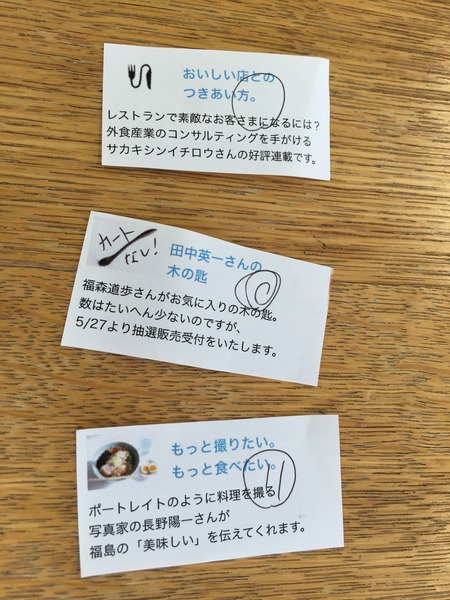 おいしい店との
つきあい方。
レストランで素敵なお客さまになるには?
外食産業のコンサルティングを手がける
サカキシンイチロウさんの好評連載です。
カート
なし!
田中英一さんの
木の匙
福森道歩さんがお気に入りの木の匙。
数はたいへん少ないのですが、
5/27より抽選販売受付をいたします。
もっと撮りたい。
もっと食べたい。
ポートレイトのように料理を撮る
写真家の長野陽一さんが
福島の「美味しい」を伝えてくれます。